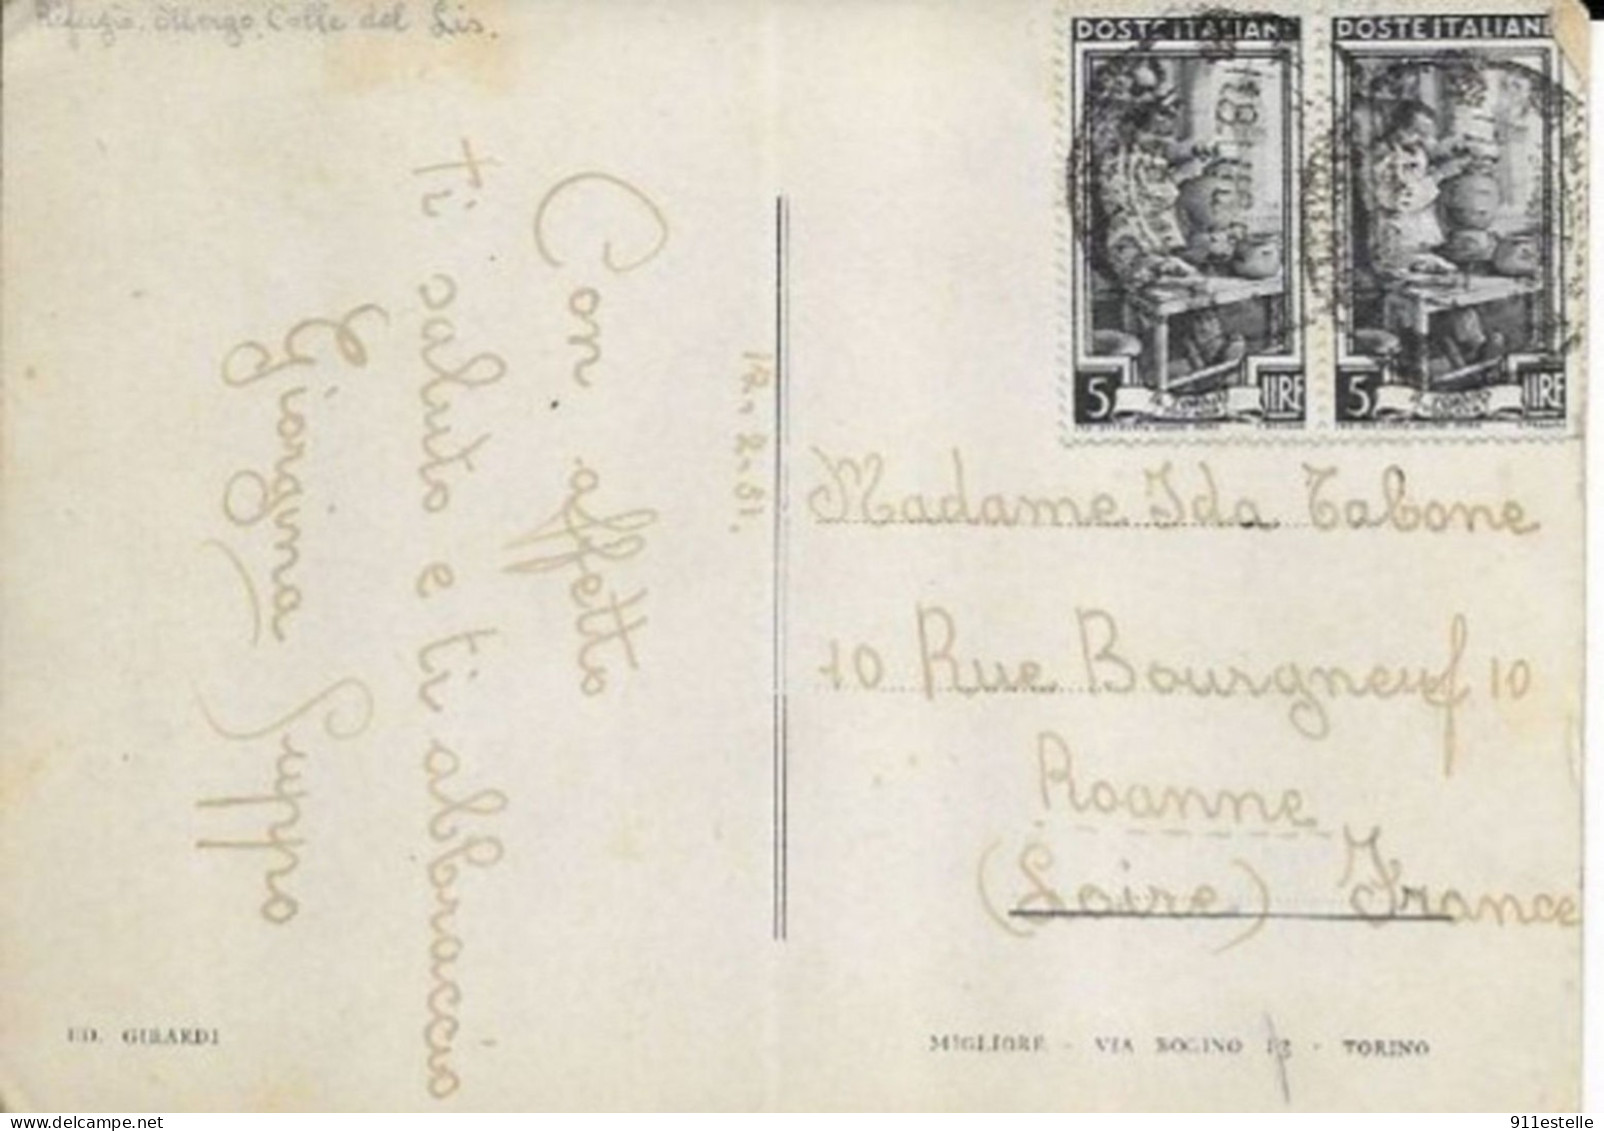 Rifugio. Albergo. Colle del Lis.
Con affetto
ti saluto e ti abbraccio
Giorgina Suppo
17-2-51.
POSTE ITALIANE
5 LIRE
POSTE ITALIANE
5 LIRE
Madame Ida Tabone
10 Rue Bourgneuf 10
Roanne
(Loire) France
ED. GIRARDI
MIGLIORE - VIA BOGINO 13 - TORINO
911estelle